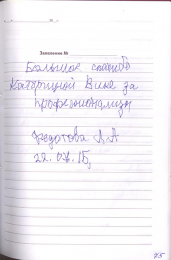 Заявление №
Большое спасибо
Катериной Вике за
профессионализм
Федотова А А
22.07.